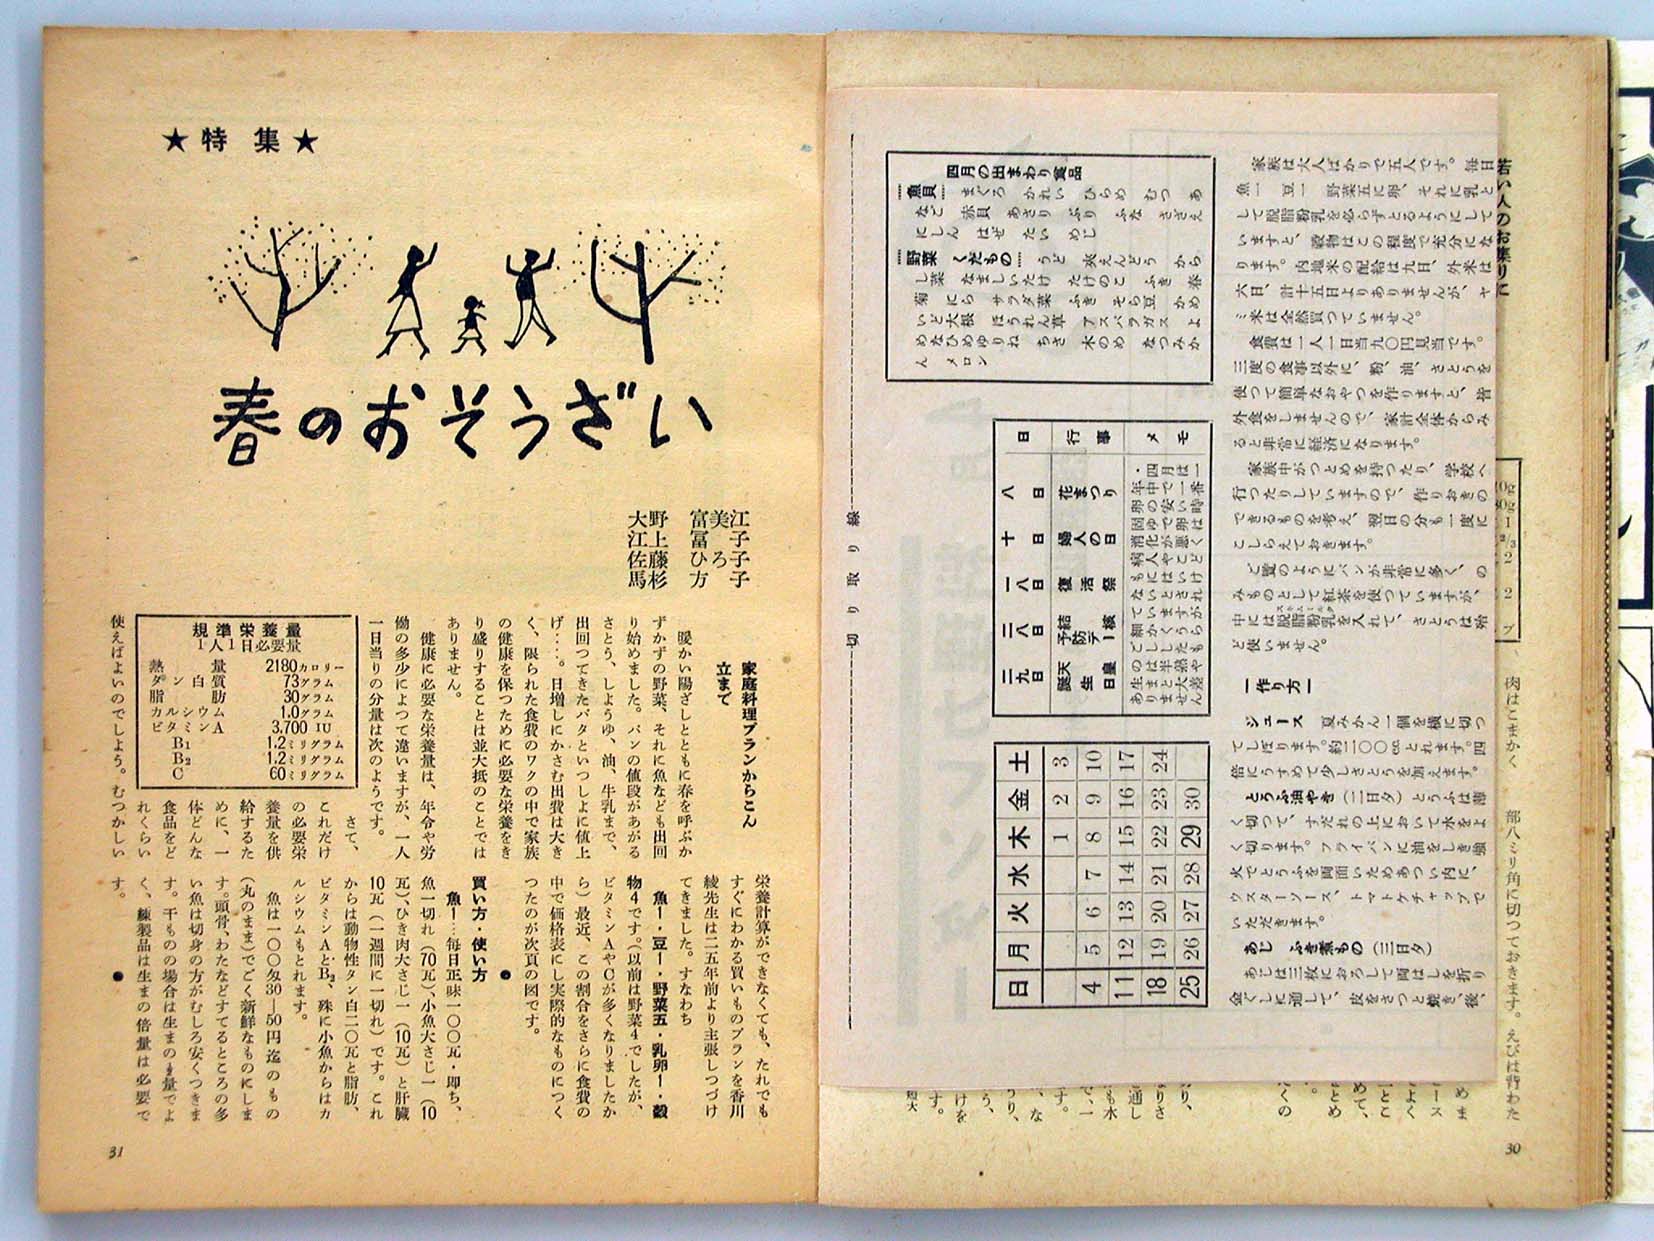 若い人のお集りに
家族は大人ばかりで五人です。毎日
魚一　豆一　野菜五に卵、それに乳と
して脱脂粉乳を必らずとるようにして
いますと、穀物はこの程度で充分にな
ります。内地米の配給は九日、外米は
六日、計十五日よりありませんが、ヤ
ミ米は全然買つていません。
食費は一人一日当九〇円見当です。
三度の食事以外に、粉、油、さとうを
使つて簡単なおやつを作りますと、皆
外食をしませんので、家計全体からみ
ると非常に経済になります。
家族中がつとめを持つたり、学校へ
行つたりしていますので、作りおきの
できるものを考え、翌日の分も一度に
こしらえておきます。
ご覧のようにパンが非常に多く、の
みものとして紅茶を使つていますが、
中には脱脂粉乳を入れて、さとうは殆
ど使いません。
―作り方―
ジュース　夏みかん一個を横に切つ
てしぼります。約一〇〇ccとれます。四
倍にうすめて少しさとうを加えます。
とうふ油やき（二日夕）とうふは薄
く切つて、すだれの上において水をよ
く切ります。フライパンに油をしき強
火でとうふを両面いためあつい内に、
ウスターソース、トマトケチャップで
いただきます。
あじ　ふき煮もの（三日夕）
あじは三枚におろして両はしを折り
金ぐしに通して、皮をさつと焼き、後、
四月の出まわり食品
魚貝　まぐろ　かれい　ひらめ　むつ　あ
なご　赤貝　あさり　ぶり　ふな　さざえ
にしん　はぜ　たい　めじ
野菜　くだもの　うど　炎えんどう　から
し菜　なましいたけ　たけのこ　ふき　春
菊　にら　サラダ菜　ふき　そら豆　かめ
いど大根　ほうれん草　アスパラガス　よ
めなひめゆりね　ちさ　木のめ　なつみか
ん　メロン
日　行事　メモ
八日　花まつり
十日　婦人の日
一八日　復活祭
二八日　結核予防デー
二九日　天皇誕生日
・四月は一
年中で一番
卵の安い時
固ゆで卵は
消化が悪く
病人やこど
もにはいけ
ないとされ
ていますが
細かくうら
ごししたも
のは半熟や
生まと大差
ありません
日 月 火 水 木 金 土
1 2 3
4 5 6 7 8 9 10
11 12 13 14 15 16 17
18 19 20 21 22 23 24
25 26 27 28 29 30
切り取り線
肉はこまかく
部八ミリ角に切つておきます。えびは背わた
30
★特集★
春のおそうざい
大野富美江
江上冨子
佐藤ひろ子
馬杉方子
家庭料理プランからこん
立まで
暖かい陽ざしとともに春を呼ぶか
ずかずの野菜、それに魚なども出回
り始めました。パンの値段があがる
さとう、しようゆ、油、牛乳まで、
出回つてきたバタといつしよに値上
げ…。日増しにかさむ出費は大き
く、限られた食費のワクの中で家族
の健康を保つために必要な栄養をき
り盛りすることは並大抵のことでは
ありません。
健康に必要な栄養量は、年令や労
働の多少によつて違いますが、一人
一日当りの分量は次のようです。
規準栄養量
1人1日必要量
熱量 2180カロリー
タン白質 73グラム
脂肪 30グラム
カルシウム 1.0グラム
ビタミンA 3,700 IU
B₁ 1.2ミリグラム
B₂ 1.2ミリグラム
C 60ミリグラム
さて、
これだけ
の必要栄
養量を供
給するた
めに、一
体どんな
食品をど
れくらい
使えばよいのでしよう。むつかしい
栄養計算ができなくても、たれでも
すぐにわかる買いものプランを香川
綾先生は二五年前より主張しつづけ
てきました。すなわち
魚一・豆一・野菜五・乳卵一・穀
物4です。（以前は野菜4でしたが、
ビタミンAやCが多くなりましたか
ら）最近、この割合をさらに食費の
中で価格表にし実際的なものにつく
つたのが次頁の図です。
●
買い方・使い方
魚一…毎日正味一〇〇瓦・即ち、
魚一切れ（70瓦）、小魚大さじ一（10
瓦）、ひき肉大さじ一（10瓦）と肝臓
10瓦（一週間に一切れ）です。これ
からは動物性タン白二〇瓦と脂肪、
ビタミンAとB₂、殊に小魚からはカ
ルシウムもとれます。
魚は一〇〇匁30―50円迄のもの
（丸のまま）でごく新鮮なものにしま
す。頭骨、わたなどすてるところの多
い魚は切身の方がむしろ安くつきま
す。干ものの場合は生まの½量でよ
く、練製品は生まの倍量は必要で
す。
●
31